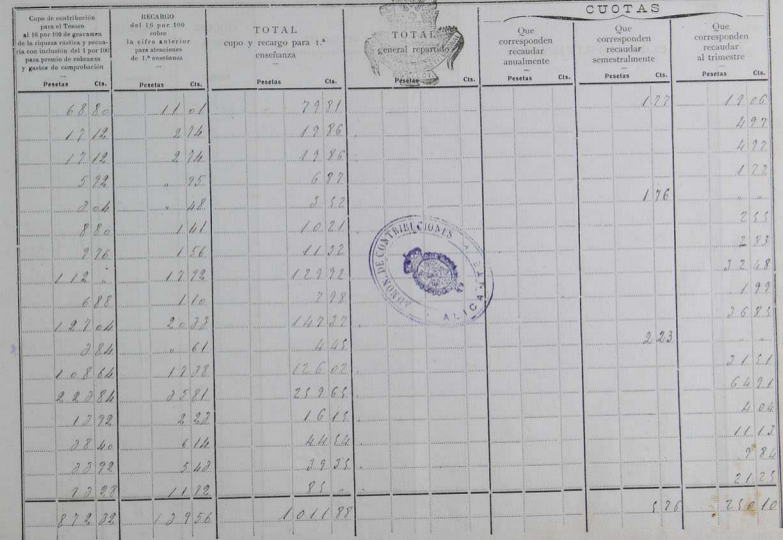 CUOTAS
Cupo de contribución
para el Tesoro
al 16 por 100 de gravamen
de la riqueza rústica y pecua-
ria con inclusión del 1 por 100
para premio de cobranza
y gastos de comprobación
Pesetas Cts.
RECARGO
del 16 por 100
sobre
la cifra anterior
para atenciones
de 1.ª enseñanza
Pesetas Cts.
TOTAL
cupo y recargo para 1.ª
enseñanza
Pesetas Cts.
TOTAL
general repartido
Pesetas Cts.
Que
corresponden
recaudar
anualmente
Pesetas Cts.
Que
corresponden
recaudar
semestralmente
Pesetas Cts.
Que
corresponden
recaudar
al trimestre
Pesetas Cts.
68 80 11 01 79 81
17 12 2 74 19 86
17 12 2 74 19 86
5 92 " 95 6 87
3 04 " 48 3 52 1 76 " "
8 80 1 41 10 21 2 55
9 76 1 56 11 32 2 83
112 " 17 92 129 92 32 48
6 88 1 10 7 98
127 04 20 33 147 37 36 85
3 84 " 61 4 45 2 23 " "
108 64 17 38 126 02 31 51
223 84 35 81 259 65 64 91
13 92 2 23 16 15 4 04
38 40 6 14 44 54 11 13
33 92 5 43 39 35 9 84
73 28 11 72 85 " 21 25
872 32 139 56 1011 88 250 10
ADMÓN. DE CONTRIBUCIONES
ALICANTE